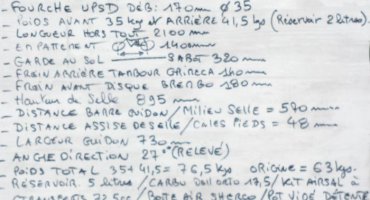 - FOURCHE UPSD DEB: 170mm Ø 35
- POIDS AVANT 35 kg et ARRIÈRE 41,5 kgs (Réservoir 2 litres).
- LONGUEUR HORS TOUT 2100 mm
- EMPATTEMENT 1400mm
- GARDE AU SOL SABOT 320 mm
- FREIN ARRIÈRE TAMBOUR GRIMECA 140 mm
- FREIN AVANT DISQUE BREMBO 180 mm
- Hauteur de Selle 895 mm
- DISTANCE BARRE GUIDON / MILIEU SELLE = 590 mm
- DISTANCE ASSISE DE SELLE / CALES PIEDS = 48
- LARGEUR GUIDON 730 mm
- ANGLE DIRECTION 27° (RELEVÉ)
- POIDS TOTAL 35+41,5= 76,5 kgs ORIGINE = 63 kgs.
- RÉSERVOIR 5 litres / CARBU 17,5 / KIT AIRSAL à
TRANSFERTS 72,5cc / BOITE AIR SHERCO / POT VIDÉ DÉTENTE